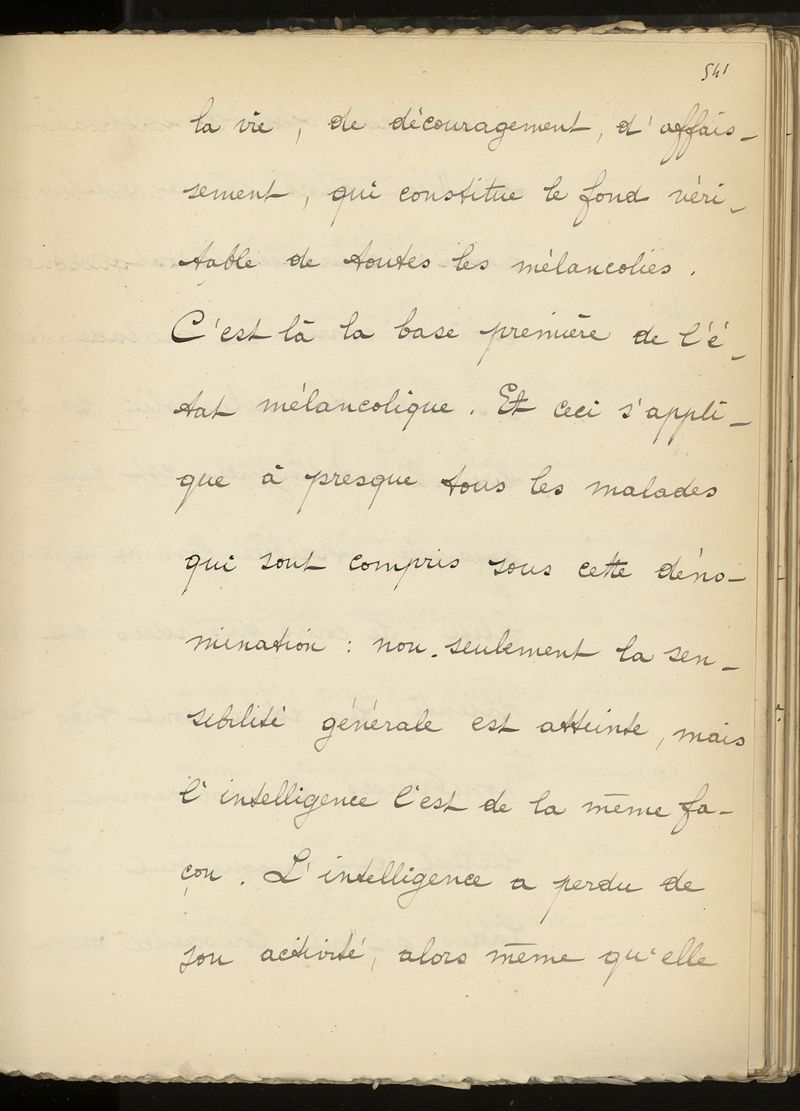 541
la vie, de découragement, d'affais-
sement, qui constitue le fond véri-
table de toutes les mélancolies.
C'est là la base première de l'é-
tat mélancolique. Et ceci s'appli-
que à presque tous les malades
qui sont compris sous cette déno-
mination : non-seulement la sen-
sibilité générale est atteinte, mais
l'intelligence l'est de la même fa-
çon. L'intelligence a perdu de
son activité, alors même qu'elle